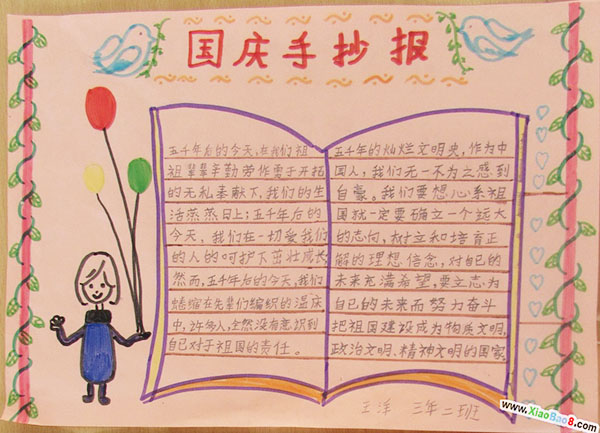 国庆手抄报
五千年后的今天,在我们祖
祖辈辈辛勤劳作勇于开拓
的无私奉献下,我们的生
活蒸蒸日上;五千年后的
今天,我们在一切爱我们
的人的呵护下茁壮成长
然而,五千年后的今天,我们
蜷缩在先辈们编织的温床
中,许多人全然没有意识到
自己对于祖国的责任。
五千年的灿烂文明史,作为中
国人,我们无一不为之感到
自豪。我们要想心系祖
国就一定要确立一个远大
的志向,树立和培育正
解的理想信念,对自己的
未来充满希望,要立志为
自己的未来而努力奋斗
把祖国建设成为物质文明,
政治文明、精神文明的国家
王洋 三年二班
www.XiaoBao8.com